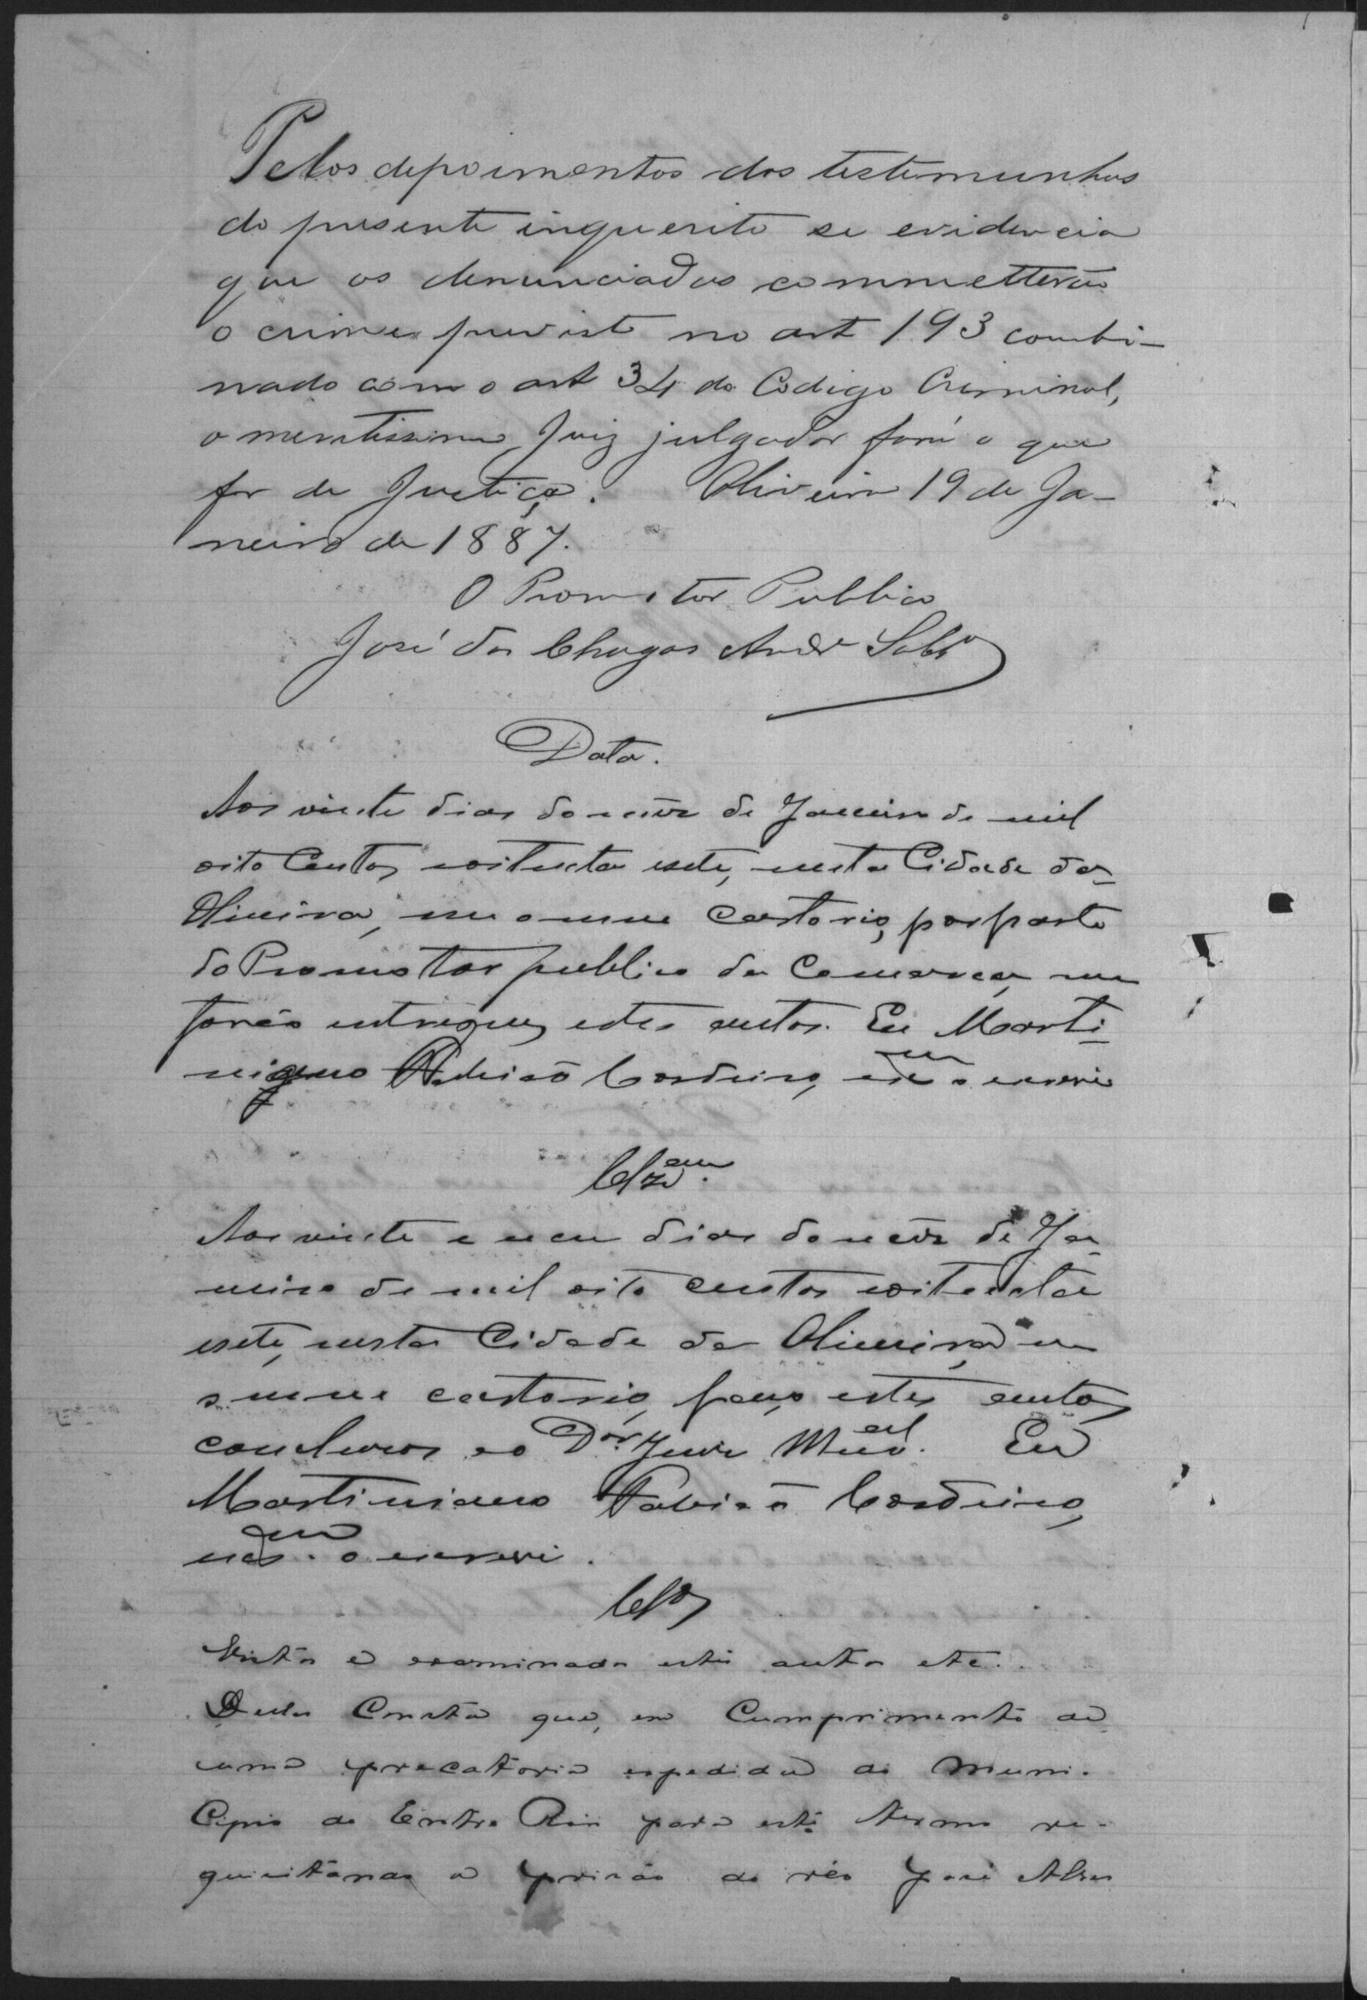 Pelos depoimentos das testemunhas
do presente inquerito se evidencia
que os denunciados commetterão
o crime previsto no art 193 combi-
nado com o art 34 do Codigo Criminal,
o meritissimo Juiz julgador fará o que
for de Justiça. Oliveira 19 de Ja-
neiro de 1887.
O Promotor Publico
José das Chagas Andr.e Sobr.o
Data.
Aos vinte dias do mêz de Janeiro de mil
oito Centos eoitenta esete, nesta Cidade da
Oliveira, em o meu Cartorio, por parte
do Promotor publico da Comarca, me
forão entregues estes autos. Eu Marti-
niano Cordeiro, o escrevi
Clzam.
Aos vinte e um dias do mêz de Ja-
neiro de mil oito centos eoitenta e
esete, nesta Cidade da Oliveira, em
o meu cartorio, faço estes autos
conclusos ao Dor. Juiz Mual. Eu
Martiniano Cordeiro,
o escrevi.
Clos
Vistos e examinados estes autos etc.
Delles Consta que, em Cumprimento de
uma precatoria expedida do Muni-
Cipio de Entre Rios para este termo re-
quisitando a prisão do réo José Alves